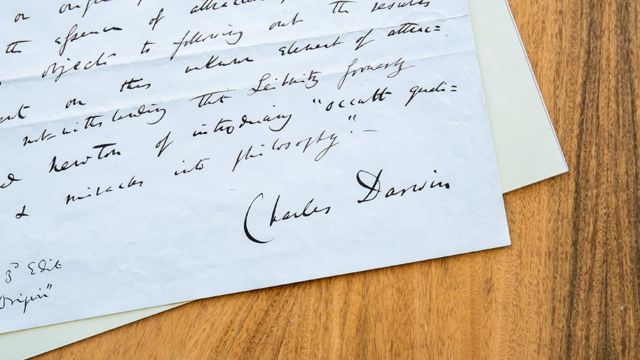 or
the essence of attraction
objects to following out the results
on this unknown element of attrac=
notwithstanding that Leibnitz formerly
Newton of introducing "occult quali=
& miracles into philosophy".—
Charles Darwin
3d Edit
Origin"